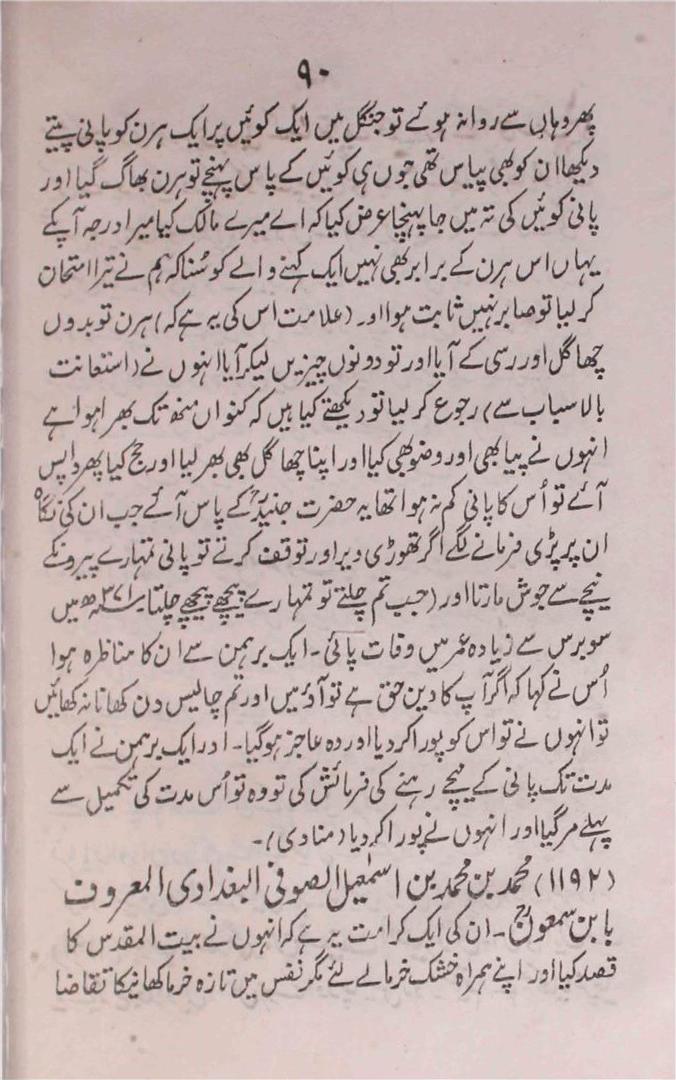 ۹۰
پھر وہاں سے روانہ ہوئے تو جنگل میں ایک کوئیں پر ایک ہرن کو پانی پیتے
دیکھا ان کو بھی پیاس تھی جوں ہی کوئیں کے پاس پہنچے تو ہرن بھاگ گیا اور
پانی کوئیں کی تہ میں جا پہنچا عرض کیا کہ اے میرے مالک کیا میرا درجہ آپکے
یہاں اس ہرن کے برابر بھی نہیں ایک کہنے والے کو سُنا کہ ہم نے تیرا امتحان
کر لیا تو صابر نہیں ثابت ہوا اور (علامت اس کی یہ ہے کہ) ہرن تو بدوں
چھاگل اور رسی کے آیا اور تو دونوں چیزیں لیکر آیا انہوں نے (استعانت
بالاسباب سے) رجوع کر لیا تو دیکھتے کیا ہیں کہ کنواں منھ تک بھرا ہوا ہے
انہوں نے پیا بھی اور وضو بھی کیا اور اپنا چھاگل بھی بھر لیا اور حج کیا پھر واپس
آئے تو اُس کا پانی کم نہ ہوا تھا یہ حضرت جنیدؒ کے پاس آئے جب ان کی نگاہ
ان پر پڑی فرمانے لگے اگر تھوڑی دیر اور توقف کرتے تو پانی تمہارے پیرونکے
نیچے سے جوش مارتا اور (جب تم چلتے تو تمہارے پیچھے پیچھے چلتا) ۳۷۱ھ میں
سو برس سے زیادہ عمر میں وفات پائی۔ ایک برہمن سے ان کا مناظرہ ہوا
اُس نے کہا کہ اگر آپ کا دین حق ہے تو آؤ میں اور تم چالیس دن کھانا نہ کھائیں
تو انہوں نے تو اس کو پورا کر دیا اور وہ عاجز ہوگیا۔ اور ایک برہمن نے ایک
مدت تک پانی کے نیچے رہنے کی فرمائش کی تو وہ تو اُس مدت کی تکمیل سے
پہلے مر گیا اور انہوں نے پورا کر دیا (منادی)۔
(۱۱۹۲) محمد بن محمد بن اسمٰعیل الصوفی البغدادی المعروف
بابن سمعونؒ۔ ان کی ایک کرامت یہ ہے کہ انہوں نے بیت المقدس کا
قصد کیا اور اپنے ہمراہ خشک خرما لے لئے مگر نفس میں تازہ خرما کھانیکا تقاضا